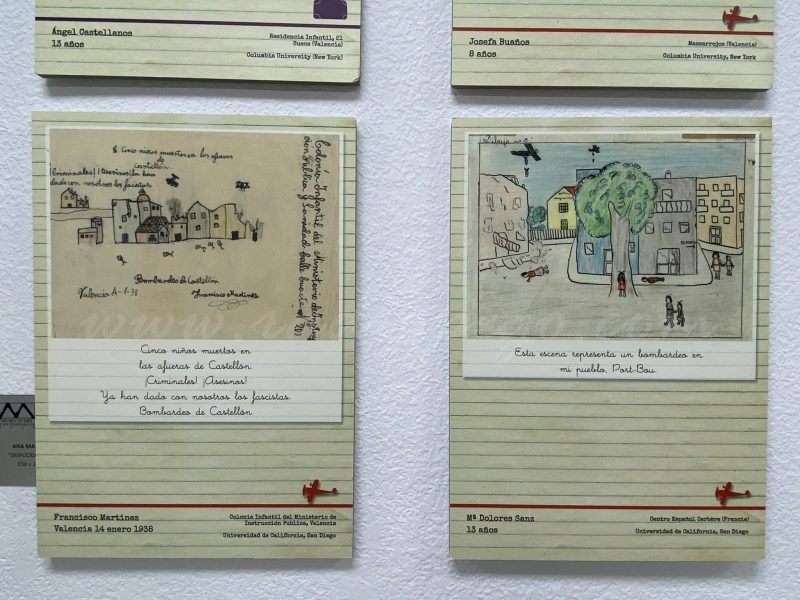 Ángel Castellanos
13 años
Residencia Infantil, 21
Sueca (Valencia)
Columbia University (New York)
Josefa Buaños
8 años
Massarrojos (Valencia)
Columbia University, New York
8 Cinco niños muertos en los afueras
de
Castellón
¡Criminales! ¡Asesinos! Ya han
dado con nosotros los fascistas
Bombardeo de Castellón
Valencia
Francisco Martinez
Colonia Infantil del Ministerio de
Cinco niños muertos en
las afueras de Castellón.
¡Criminales! ¡Asesinos!
Ya han dado con nosotros los fascistas.
Bombardeo de Castellón
Francisco Martínez
Valencia 14 enero 1938
Colonia Infantil del Ministerio de
Instrucción Publica, Valencia
Universidad de California, San Diego
Dibujo
Esta escena representa un bombardeo en
mi pueblo, Port-Bou.
Mª Dolores Sanz
13 años
Centro Español Cerbère (Francia)
Universidad de California, San Diego
ANA MA